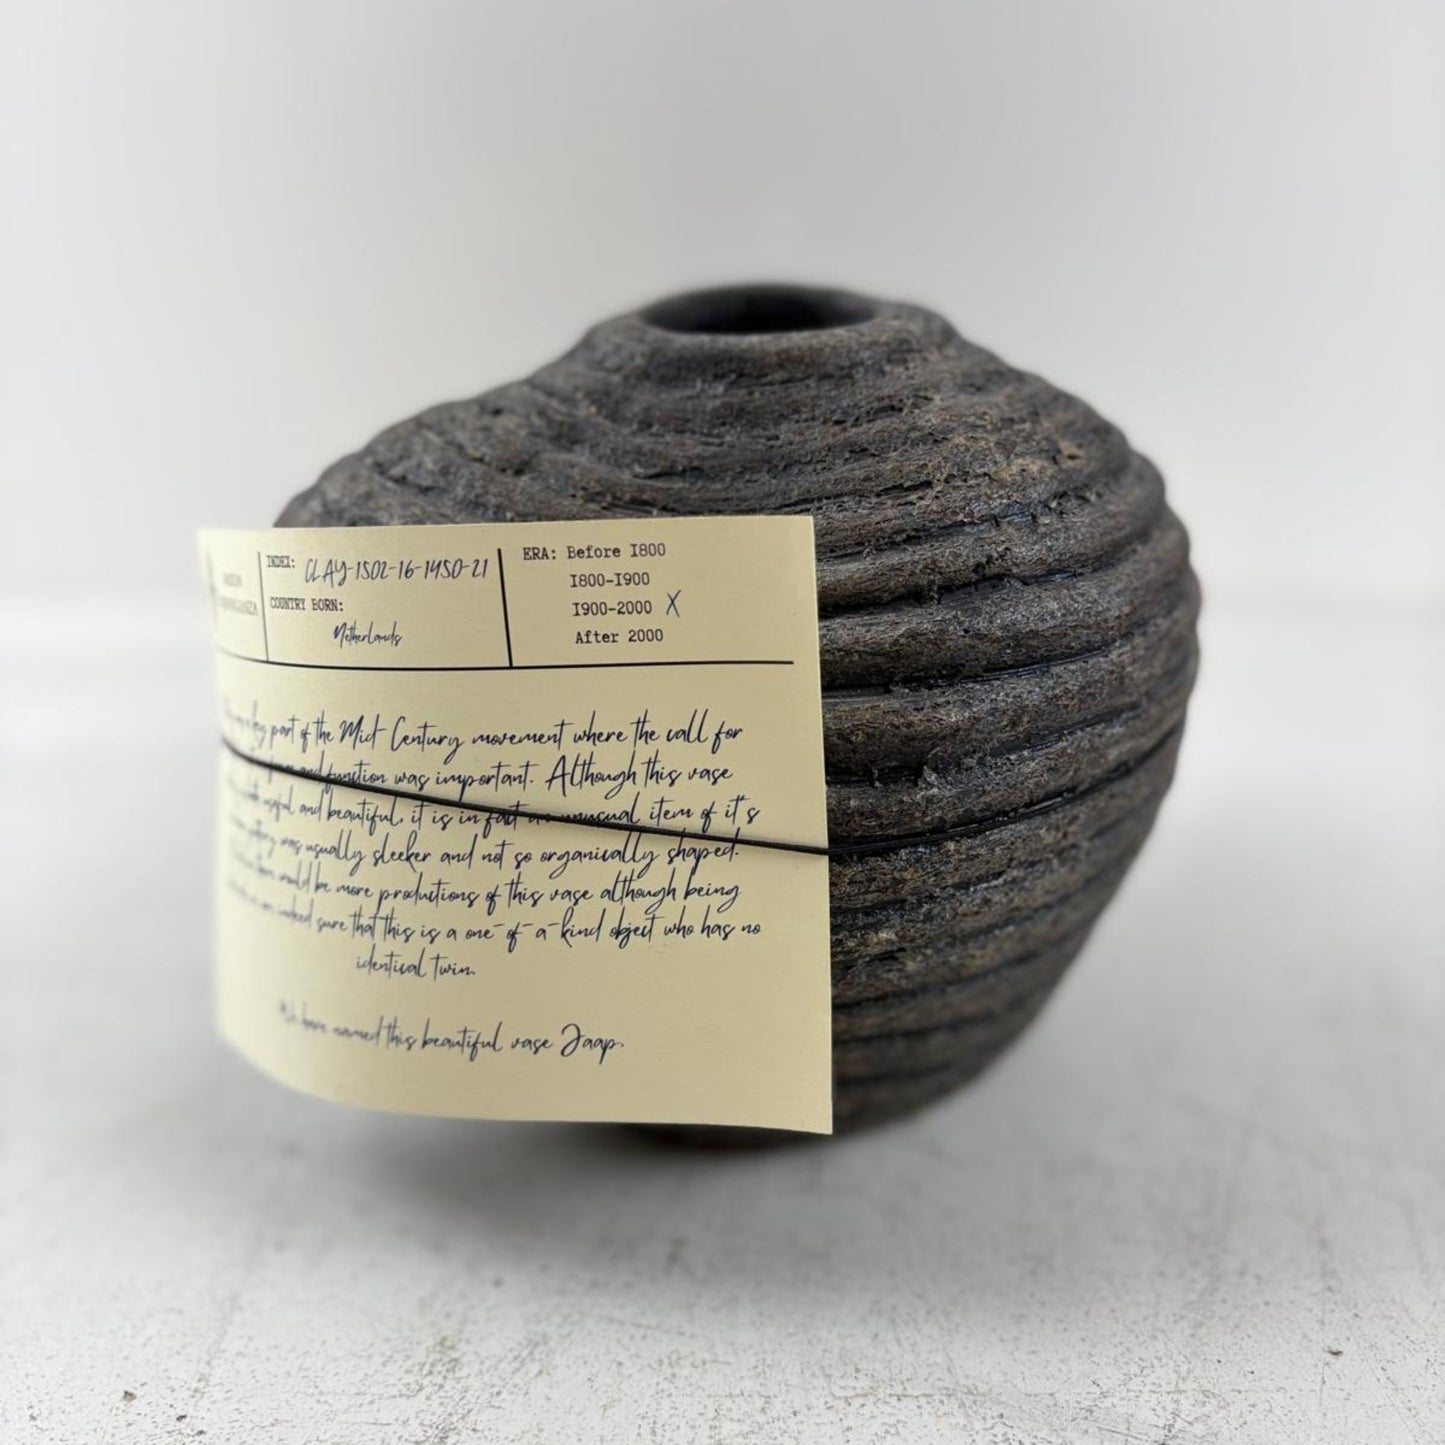 INDEX: CLAY-1502-16-1450-21
COUNTRY BORN:
Netherlands
ERA: Before 1800
1800-1900
1900-2000 X
After 2000
key part of the Mid-Century movement where the call for
and function was important. Although this vase
useful and beautiful, it is in fact an unusual item of it's
pottery was usually sleeker and not so organically shaped.
would be more productions of this vase although being
indeed sure that this is a one-of-a-kind object who has no
identical twin.
We have named this beautiful vase Jaap.